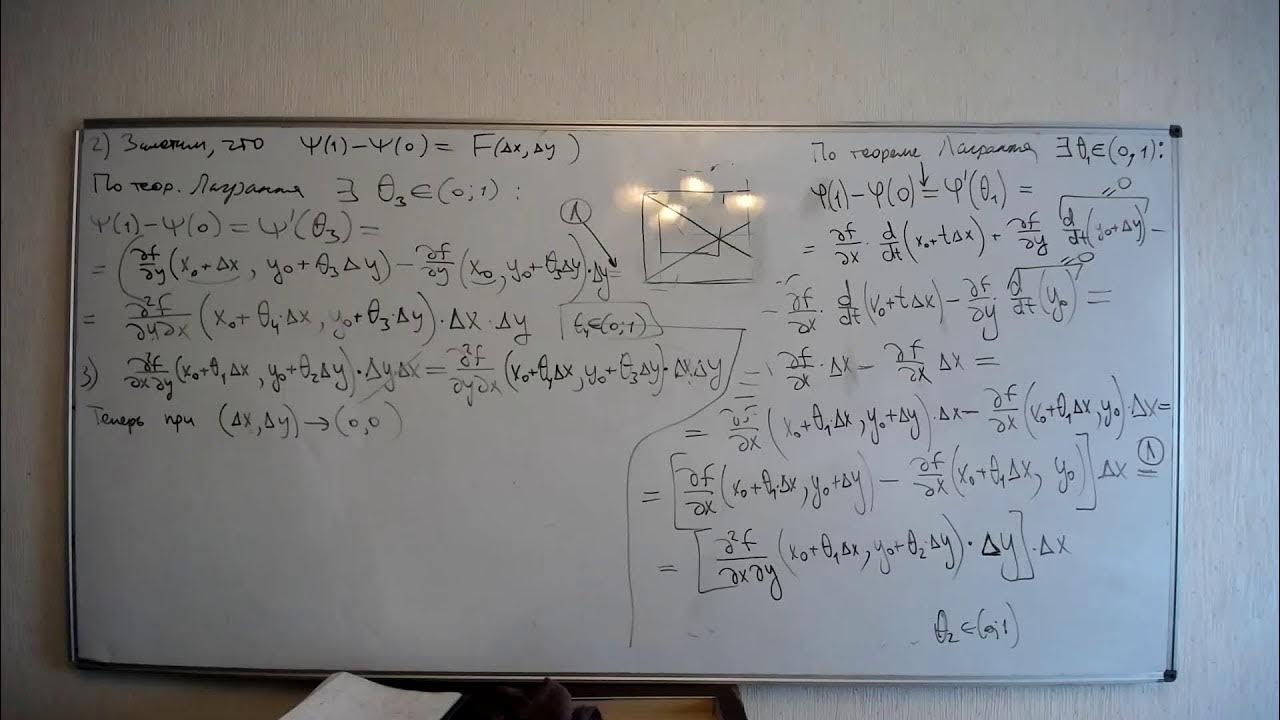 2) Заметим, что Ψ(1)−Ψ(0) = F(Δx, Δy)
По теор. Лагранжа ∃ θ₃∈(0;1):
Ψ(1)−Ψ(0) = Ψ'(θ₃) =
= (∂f/∂y (x₀+Δx, y₀+θ₃Δy) − ∂f/∂y (x₀, y₀+θ₃Δy))·Δy =
Л
= ∂²f/∂y∂x (x₀+θ₄·Δx, y₀+θ₃·Δy)·Δx·Δy
θ₄∈(0;1)
3) ∂²f/∂x∂y (x₀+θ₁Δx, y₀+θ₂Δy)·ΔyΔx = ∂²f/∂y∂x (x₀+θ₄Δx, y₀+θ₃Δy)·ΔxΔy
Теперь при (Δx, Δy)→(0,0)
По теореме Лагранжа ∃θ₁∈(0,1):
φ(1)−φ(0) = φ'(θ₁) =
= ∂f/∂x · d/dt (x₀+tΔx) + ∂f/∂y d/dt (y₀+Δy) −
=0
− ∂f/∂x · d/dt (x₀+tΔx) − ∂f/∂y d/dt (y₀) =
=0
= ∂f/∂x · Δx − ∂f/∂x Δx =
= ∂f/∂x (x₀+θ₁·Δx, y₀+Δy)·Δx − ∂f/∂x (x₀+θ₁Δx, y₀)·Δx =
= [∂f/∂x (x₀+θ₁·Δx, y₀+Δy) − ∂f/∂x (x₀+θ₁Δx, y₀)] Δx =
Л
= [∂²f/∂x∂y (x₀+θ₁Δx, y₀+θ₂·Δy)·Δy]·Δx
θ₂∈(0;1)